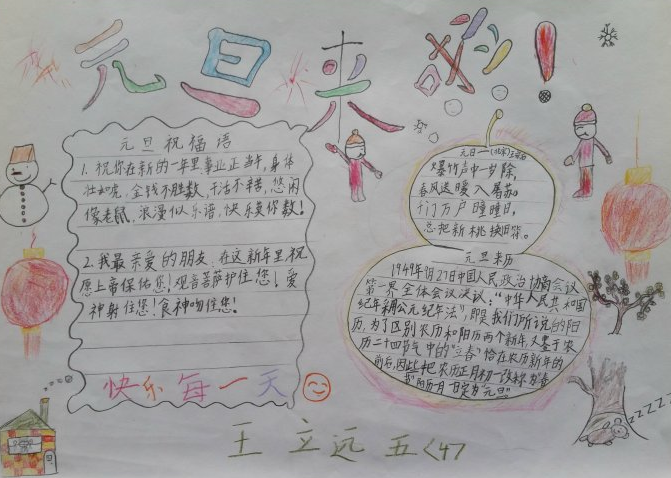 元旦来啦!
元旦祝福语
1.祝你在新的一年里事业正当午,身体
壮如虎,金钱不胜数,干活不辛苦,悠闲
像老鼠,浪漫似乐谱,快乐莫你数!
2.我最亲爱的朋友,在这新年里祝
愿上帝保佑您!观音菩萨护住您!爱
神射住您!食神吻住您!
快乐每一天
元日—(北宋)王安石
爆竹声中一岁除,
春风送暖入屠苏。
千门万户曈曈日,
总把新桃换旧符。
元旦来历
1949年9月27日中国人民政治协商会议
第一界全体会议决议:“中华人民共和国
纪年采用公元纪年法”,即是我们所说的阳
历,为了区别农历和阳历两个新年,又鉴于农
历二十四节气中的“立春”恰在农历新年的
前后,因此把农历正月初一改称为“春
节”,阳历一月一日定为“元旦”
王立远 五<4>
zzzzz